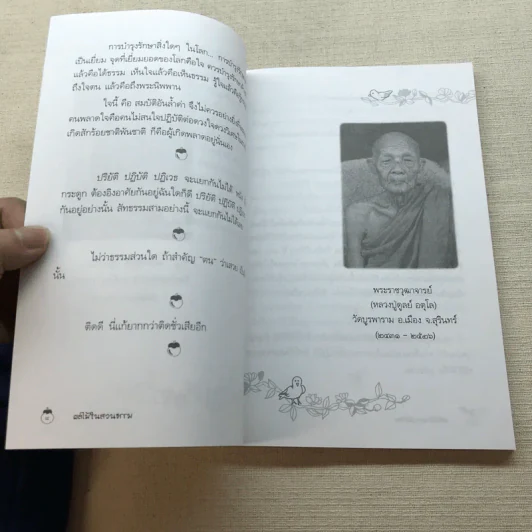 การบำรุงรักษาสิ่งใดๆ ในโลก... การบำรุง
เป็นเยี่ยม จุดที่เยี่ยมยอดของโลกคือใจ ควรบำรุงรักษา
แล้วคือได้ธรรม เห็นใจแล้วคือเห็นธรรม รู้ใจแล้วคือรู้
ถึงใจตน แล้วคือถึงพระนิพพาน
ใจนี้ คือ สมบัติอันล้ำค่า จึงไม่ควรอย่างยิ่งที่
คนพลาดใจคือคนไม่สนใจปฏิบัติต่อดวงใจดวงวิเศษใน
เกิดสักร้อยชาติพันชาติ ก็คือผู้เกิดพลาดอยู่นั่นเอง
ปริยัติ ปฏิบัติ ปฏิเวธ จะแยกกันไม่ได้
กระดูก ต้องอิงอาศัยกันอยู่ฉันใดก็ดี ปริยัติ ปฏิบัติ
กันอยู่อย่างนั้น สัทธรรมสามอย่างนี้ จะแยกกันไม่ได้เลย
ไม่ว่าธรรมส่วนใด ถ้าสำคัญ "ตน" ว่า
นั้น
ติดดี นี่แก้ยากกว่าติดชั่วเสียอีก
พระราชวุฒาจารย์
(หลวงปู่ดูลย์ อตุโล)
วัดบูรพาราม อ.เมือง จ.สุรินทร์
(๒๔๓๑ - ๒๕๒๖)